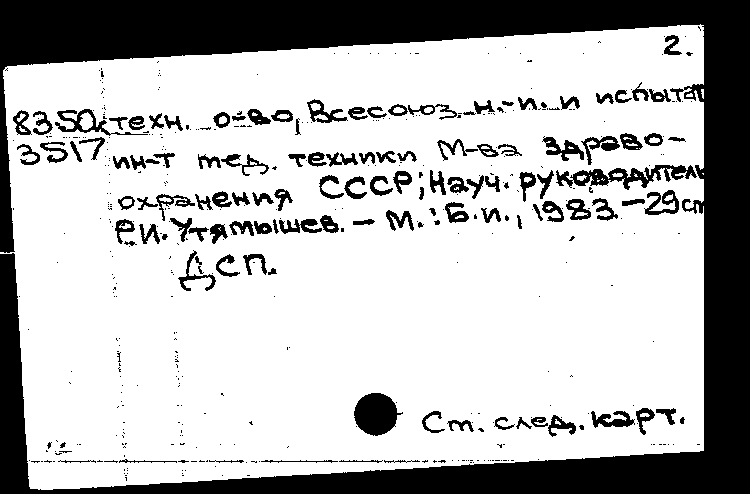 2.
8350к техн. о-во, Всесоюз. н.-и. и испытат
3517 ин-т мед. техники М-ва здраво-
охранения СССР; Науч. руководитель
Р.И. Утямышев. - М.: Б.и., 1983. - 29 см
ДСП.
См. след. карт.